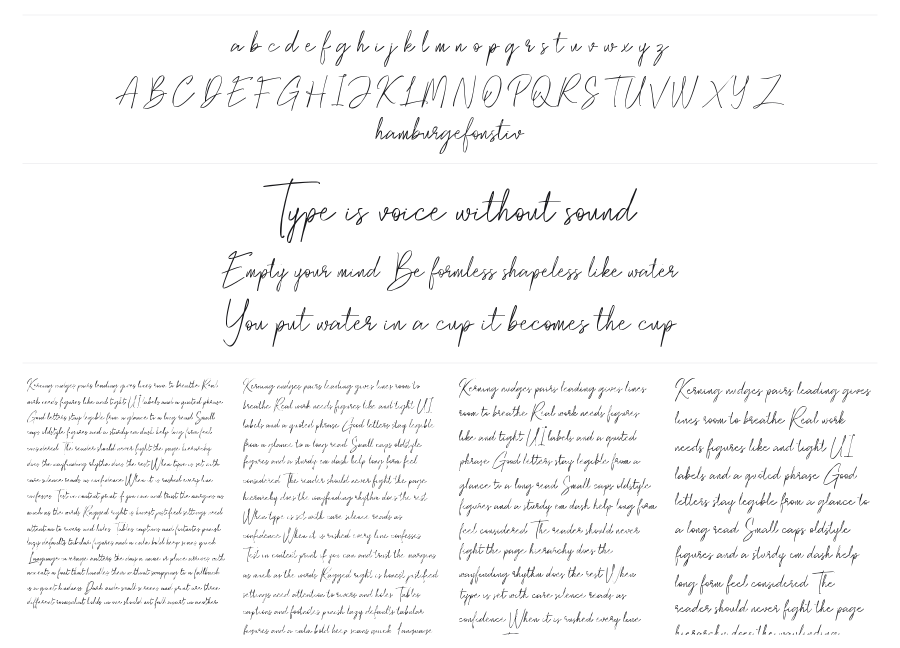 a b c d e f g h i j k l m n o p q r s t u v w x y z
A B C D E F G H I J K L M N O P Q R S T U V W X Y Z
hamburgefonstiv
Type is voice without sound
Empty your mind Be formless shapeless like water
You put water in a cup it becomes the cup
Kerning nudges pairs leading gives lines room to breathe Real
work needs figures like and tight UI labels and a quoted phrase
Good letters stay legible from a glance to a long read Small
caps oldstyle figures and a sturdy em dash help long form feel
considered The reader should never fight the page hierarchy
does the wayfinding rhythm does the rest When type is set with
care silence reads as confidence When it is rushed every line
confesses Test in context print if you can and trust the margins as
much as the words Ragged right is honest justified settings need
attention to rivers and holes Tables captions and footnotes punish
lazy defaults tabular figures and a calm bold keep scans quick
Kerning nudges pairs leading gives lines room to
breathe Real work needs figures like and tight UI
labels and a quoted phrase Good letters stay legible
from a glance to a long read Small caps oldstyle
figures and a sturdy em dash help long form feel
considered The reader should never fight the page
hierarchy does the wayfinding rhythm does the rest
When type is set with care silence reads as
confidence When it is rushed every line confesses
Test in context print if you can and trust the margins
as much as the words Ragged right is honest justified
settings need attention to rivers and holes Tables
captions and footnotes punish lazy defaults tabular
figures and a calm bold keep scans quick Language
Kerning nudges pairs leading gives lines
room to breathe Real work needs figures
like and tight UI labels and a quoted
phrase Good letters stay legible from a
glance to a long read Small caps oldstyle
figures and a sturdy em dash help long form
feel considered The reader should never
fight the page hierarchy does the
wayfinding rhythm does the rest When
type is set with care silence reads as
confidence When it is rushed every line
Kerning nudges pairs leading gives
lines room to breathe Real work
needs figures like and tight UI
labels and a quoted phrase Good
letters stay legible from a glance to
a long read Small caps oldstyle
figures and a sturdy em dash help
long form feel considered The
reader should never fight the page
hierarchy does the wayfinding